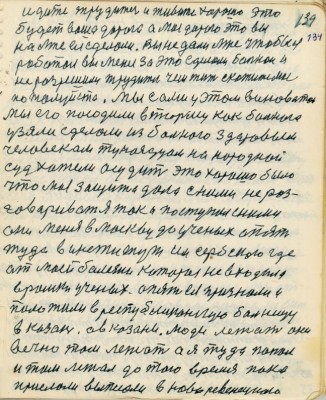 идите трудитесь и живите хорошо это
будет ваша дорога а моя дорога это вы
на мне сделали. Вы недали мне чтобы
работал вы меня за это сделали больным и
не разрешили трудится
пожалуйста. Мы сами у этом виноваты
мы его посодили в тюрьму как больного
узяли сделали из больного здоровым
человекам тунаядцам на народной
суд хатели осудит это хорошо было
что моя защита дала с ними не раз-
говаривается так и поступил с ними
они меня в Москву до ученых опят
туда в институт им сербского где
от моей болезни которая не входила
в рамки ученых. опят ся признали и
положили в республиканскую больницу
в казан. а в казани. люди лежат они
вечно там лежат а я туда попал
и там лежал до того время пока
прислали выписали в новоровенецкого
139
134